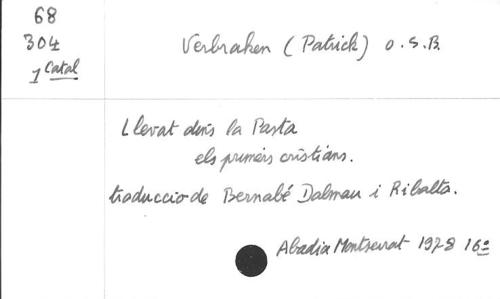 68
304
1 Catal
Verbraken (Patrick) O.S.B.
Llevat dins la Pasta
els primers cristians.
traduccio de Bernabé Dalmau i Ribalta.
Abadia Montserrat 1978 16º